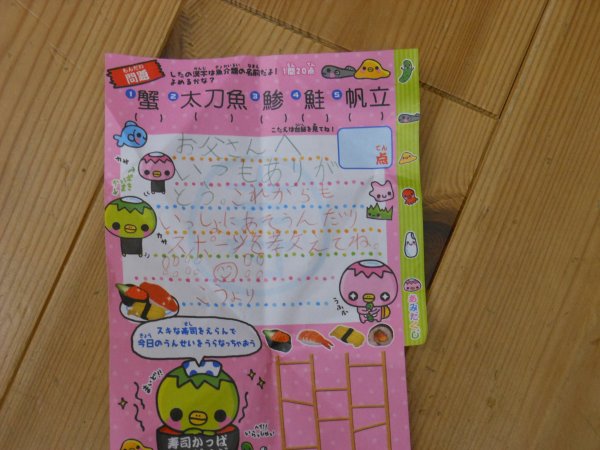 もんだい
問題
したの漢字は魚介類の名前だよ！1問20点
よめるかな？
1 蟹 2 太刀魚 3 鯵 4 鮭 5 帆立
( ) ( ) ( ) ( ) ( )
こたえは台紙を見てね！
てん
点
お父さんへ
いつもありが
とう。これからも
いっしょにあそうんだり
スポーツを教えてね。
こうより
カサ
カサ
あみだくじ
スキな寿司をえらんで
今日のうんせいをうらなっちゃおう
まいど!!
へい!!
いらっしゃい
寿司かっぱ